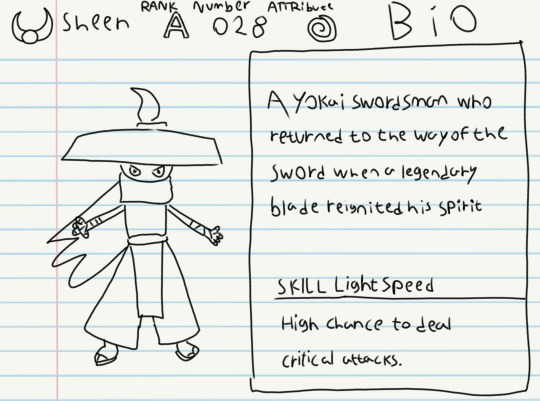 Sheen RANK A Number 028 ATTRibute BiO
A Yokai swordsman who
returned to the way of the
sword when a legendary
blade reignited his spirit
SKILL LightSpeed
High chance to deal
critical attacks.